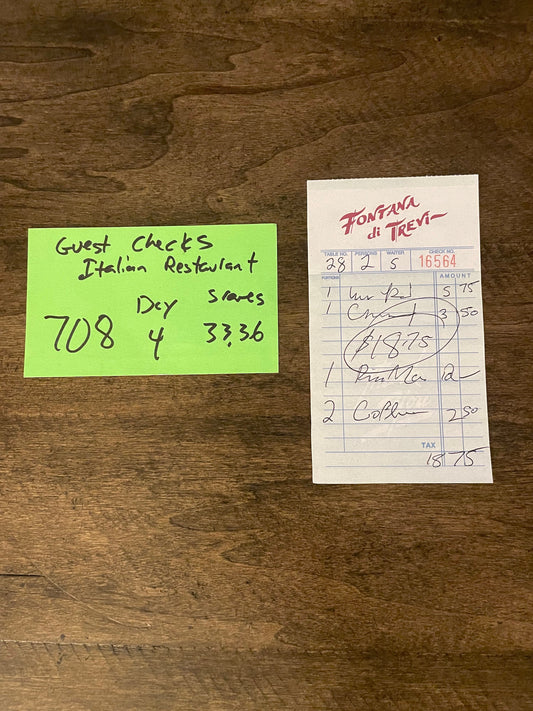 Guest Checks
Italian Restaurant
Day Scenes
708 4 33,36
FONTANA
di TREVI
TABLE NO. PERSONS WAITER CHECK NO.
28 2 5 16564
PORTIONS AMOUNT
1 5 75
1 3 50
$18.75
1 12 —
2 2 50
TAX
18 75